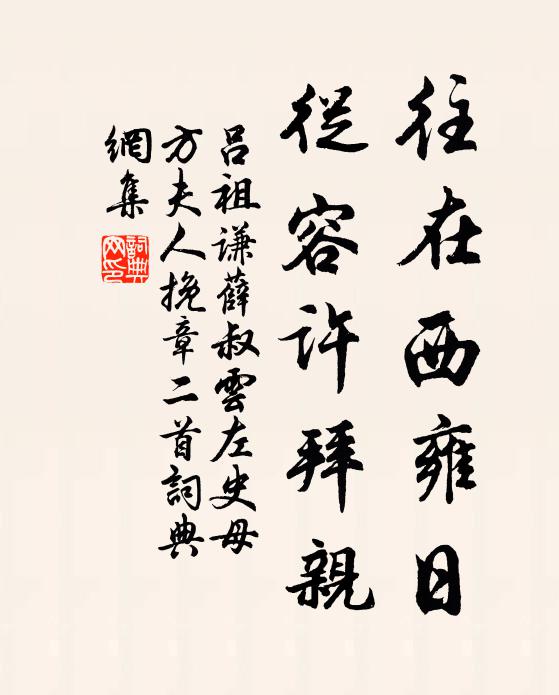 往在西雍日
從容許拜親
呂祖謙薛叔雲左史母
方夫人挽章二首詞典
網集
詞典網印